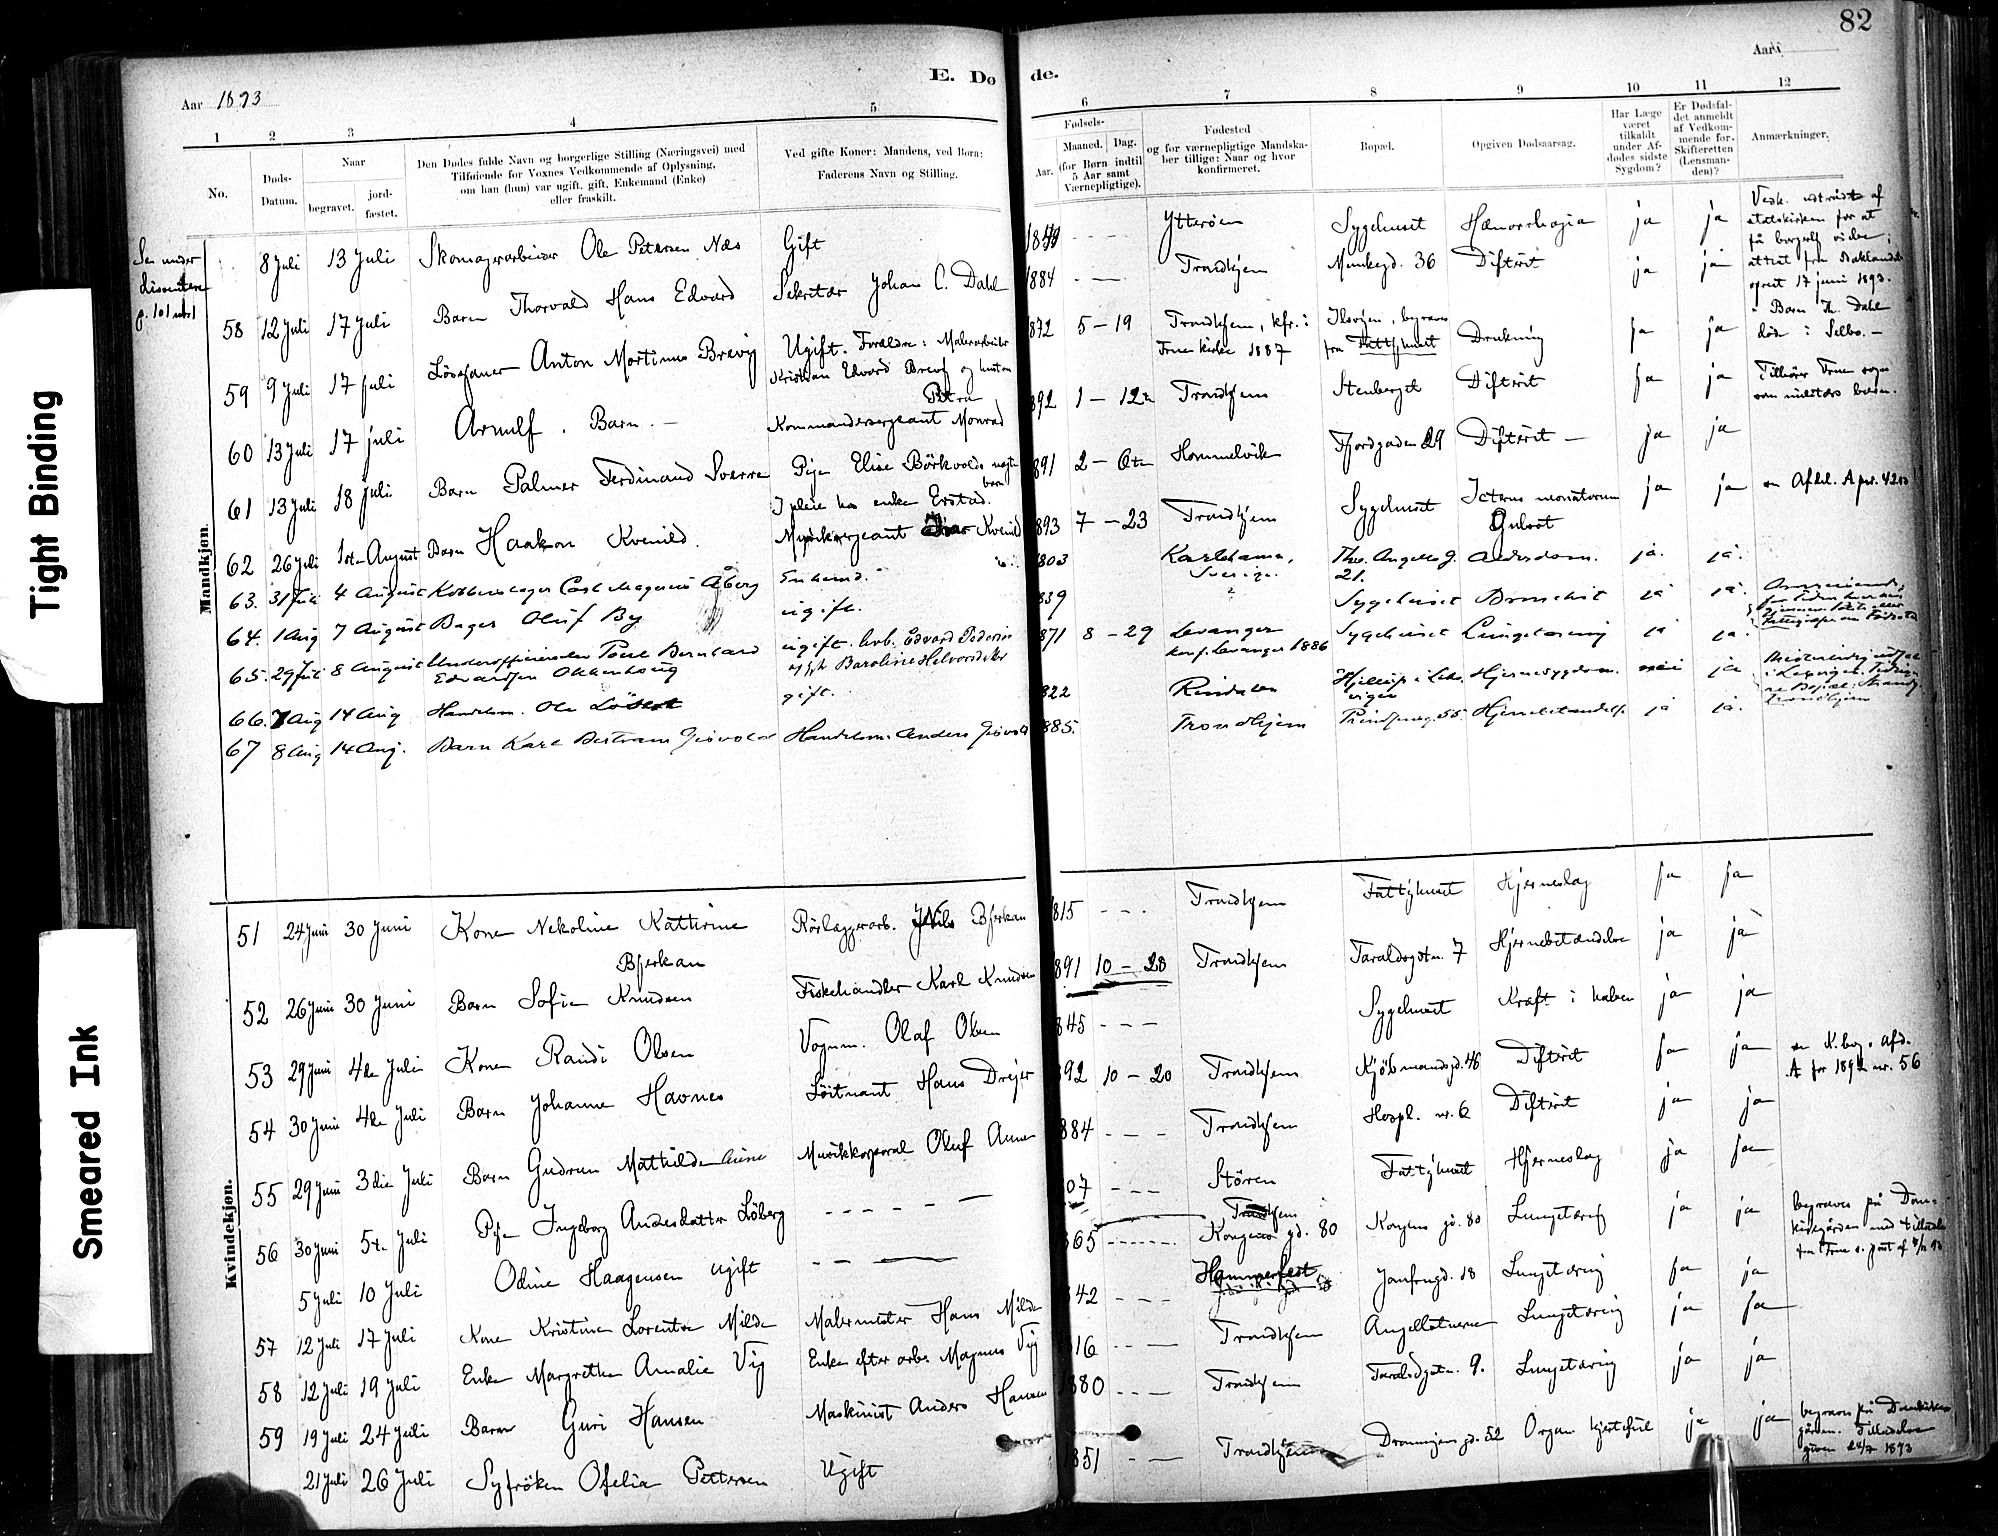 Tight Binding
Smeared Ink
82
E. Dø de.
Aar 1893
Aar
1 2 3 4 5 6 7 8 9 10 11 12
No.
Døds-
Datum.
Naar
begravet.
jord-
fæstet.
Den Dødes fulde Navn og borgerlige Stilling (Næringsvei) med
Tilføiende for Voxnes Vedkommende af Oplysning,
om han (hun) var ugift, gift, Enkemand (Enke)
eller fraskilt.
Ved gifte Koner: Mandens, ved Børn:
Faderens Navn og Stilling.
Fødsels-
Aar.
Maaned. Dag.
(for Børn indtil
5 Aar samt
Værnepligtige).
Fødested
og for værnepligtige Mandska-
ber tillige: Naar og hvor
konfirmeret.
Bopæl.
Opgiven Dødsaarsag.
Har Læge
været
tilkaldt
under Af-
dødes sidste
Sygdom?
Er Dødsfal-
det anmeldt
af Vedkom-
mende for
Skifteretten
(Lensman-
den)?
Anmærkninger.
Mandkjøn.
Se under
dissentere
p. 101
8 Juli 13 Juli Skomagerarbeider Ole Petersen Næs Gift Ytterøen Sygehuset Hæmorrhagia ja ja
Vedk. udtraadt af
statskirken for at
få borgerlig vielse;
attest fra Baklandet
17 juni 1893.
58 12 Juli 17 Juli Barn Thorvald Hans Edvard Sekretær Johan C. Dahl 1884 - - Trondhjem Munkegd. 36 Difterit ja ja
Barn Th. Dahl
døde i Selbo. -
59 9 Juli 17 juli Løsgjænger Anton Mortinus Brevig Ugift. Forældre: Malerarbeider
Kristian Edvard Brevig og hustru
Petra
872 5 - 19 Trondhjem, kfr. i
Frue kirke 1887
Ilsvigen, begraves
fra Fattighuset
Drukning ja ja
60 13 Juli 17 juli Arnulf. Barn. - Kommandersergeant Monrad 892 1 - 12te Trondhjem Stenberget Difterit ja ja
Tilhører Frue sogn
som militærs barn.
61 13 Juli 18 juli Barn Palmer Ferdinand Sverre Pige Elise Børkvolds uægte
barn
I pleie hos enke Erstad.
891 2 - 6te Hommelvik Fjordgaden 29 Difterit - ja ja
62 26 Juli 1ste August Barn Haakon Kvenild. Musiksergeant Kvenild 893 7 - 23 Trondhjem Sygehuset Icterus neonatorum
Gulsot
ja ja Afdel. A
63. 31 Juli 4 August Kobberslager Carl Magnus Åberg Enkemd. 803 Karlshamn,
Sverige.
Tho. Angells g.
21.
Alderdom. ja. ja.
64. 1 Aug 7 August Bager Oluf By ugift. 839 Sygehuset Bronchit ja ja.
65. 29 Juli 8 August Underofficierselev Peter Bernhard
Edvardsen Okkenhaug
ugift. Arb. Edvard Pedersen
871 8 - 29 Levanger
konf. Levanger 1886
Sygehuset Lungetæring ja ja.
66. 7 Aug 14 Aug Handelsm. Ole Løset gift. 822 Rindalen Hjernesygdom. nei ja
67 8 Aug 14 Aug. Barn Karl Bertram Grøvold Handelsm. Anders Grøvold 885. Trondhjem 55. Hjernebetændelse ja ja.
Kvindekjøn.
51 24 Juni 30 Juni Kone Nekoline Kathrine
Bjerkan
Rørlæggerarb. Nils Bjerkan 815 - - - Trondhjem Fattighuset Hjerneslag ja ja
52 26 Juni 30 Juni Barn Sofie Knudsen Fiskehandler Karl Knudsen 891 10 - 20 Trondhjem Taraldsgdtn. 7 Hjernebetændelse ja ja
53 29 Juni 4de Juli Kone Randi Olsen Vognm. Olaf Olsen 845 - - - Sygehuset Kræft i maven ja ja
54 30 Juni 4de Juli Barn Johanne Havnes Løitnant Hans Dreyer 892 10 - 20 Trondhjem Kjøbmandsgd. 46 Difterit ja ja
se K.bog Afd.
A for 1892 nr. 56
55 29 Juni 3die Juli Barn Gudrun Mathilde Aune Musikkorporal Oluf Aune 884 - - - Trondhjem Hospl. nr. 6 Difterit ja ja
56 30 Juni 5te Juli Pige Ingeborg Andersdatter Løberg - - - - 07 - - - Støren Fattighuset Hjerneslag ja ja
5 Juli 10 Juli Odine Haagensen ugift - - 865 Trondhjem
Kongens gd. 80 Kongens gd. 80 Lungetæring ja ja
begraves på Dom-
kirkegården med tilladelse
57 12 Juli 17 Juli Kone Kristine Lorentse Milde Malermester Hans Milde 842 - - - Hammerfest Jomfrugd. 18 Lungetæring ja ja
58 12 Juli 19 Juli Enke Margrethe Amalie Vig Enke efter arb. Magnus Vig 816 - - - Trondhjem Lungetæring ja ja
59 19 Juli 24 Juli Barn Guri Hansen Maskinist Anders Hansen 1880 - - - Trondhjem Taraldsgdtn. 9. Lungetæring ja ja
21 Juli 26 Juli Syfrøken Ofelia Pettersen Ugift 1851 - - Trondhjem Dronningens gd. 52 Organ. hjertefeil ja ja
begraves på Domkirke-
gården. Tilladelse
given 24/7 1893